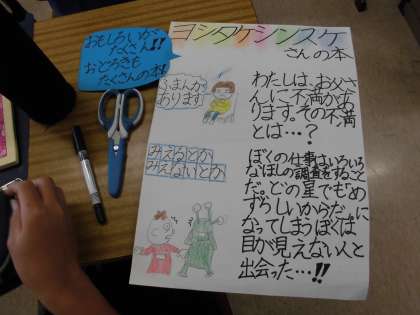 おもしろいが
たくさん!!
おどろきも
たくさんの本
ヨシタケシンスケ
さんの本
ふまんが
あります
わたしは、お父さ
んに不満があ
ります。その不満
とは…?
みえるとか
みえないとか
ぼくの仕事はいろいろ
なほしの調査をすること
だ。どの星でもめ
ずらしいからだ。に
なってしまうぼくは
目が見えない人と
出会った…!!